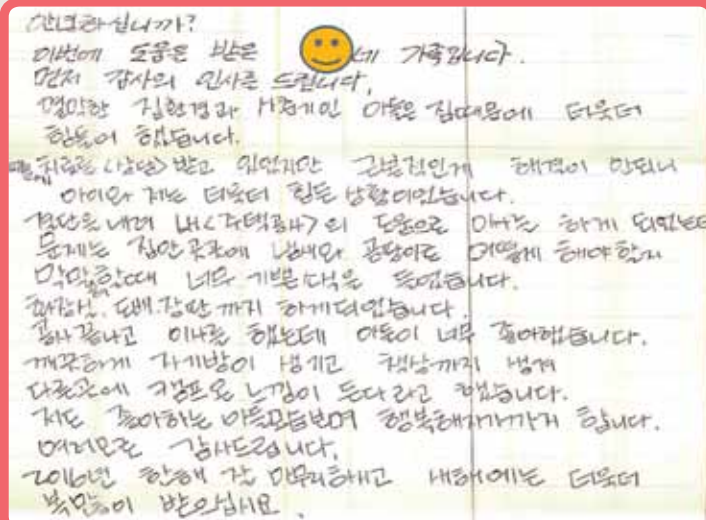 안녕하십니까?
이번에 도움을 받은 네 가족입니다.
먼저 감사의 인사를 드립니다.
열악한 집환경과 사춘기인 아들은 집때문에 더욱더
힘들어 했답니다.
치료를 <상담> 받고 있었지만 근본적인게 해결이 안되니
아이와 저는 더욱더 힘든 상황이었습니다.
결단을 내려 내<주택공사>의 도움으로 이사는 하게 되었는데
문제는 집안 곳곳에 냄새와 곰팡이로 어떻게 해야할지
막막할때 너무 기쁜소식을 들었습니다.
화장실, 도배.장판까지 하게되었습니다.
공사 끝나고 이사를 했는데 아들이 너무 좋아했습니다.
깨끗하게 자기방이 생기고 책상까지 생겨
다른곳에 캠프온 느낌이 든다 라고 했습니다.
저도 좋아하는 아들모습보며 행복해지기까지 합니다.
여러모로 감사드립니다.
2016년 한해 잘 마무리하고 내해에는 더욱더
복많이 받으십시요.